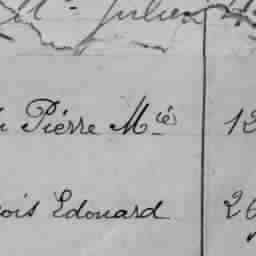 Mr. Julien
Pierre Mié 12
ois Edouard 26